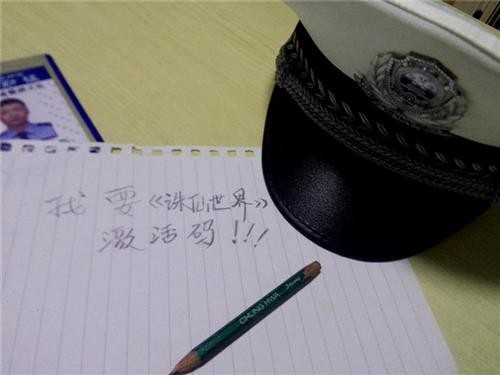 我要《诛仙世界》
激活码!!!
CHUNG HWA